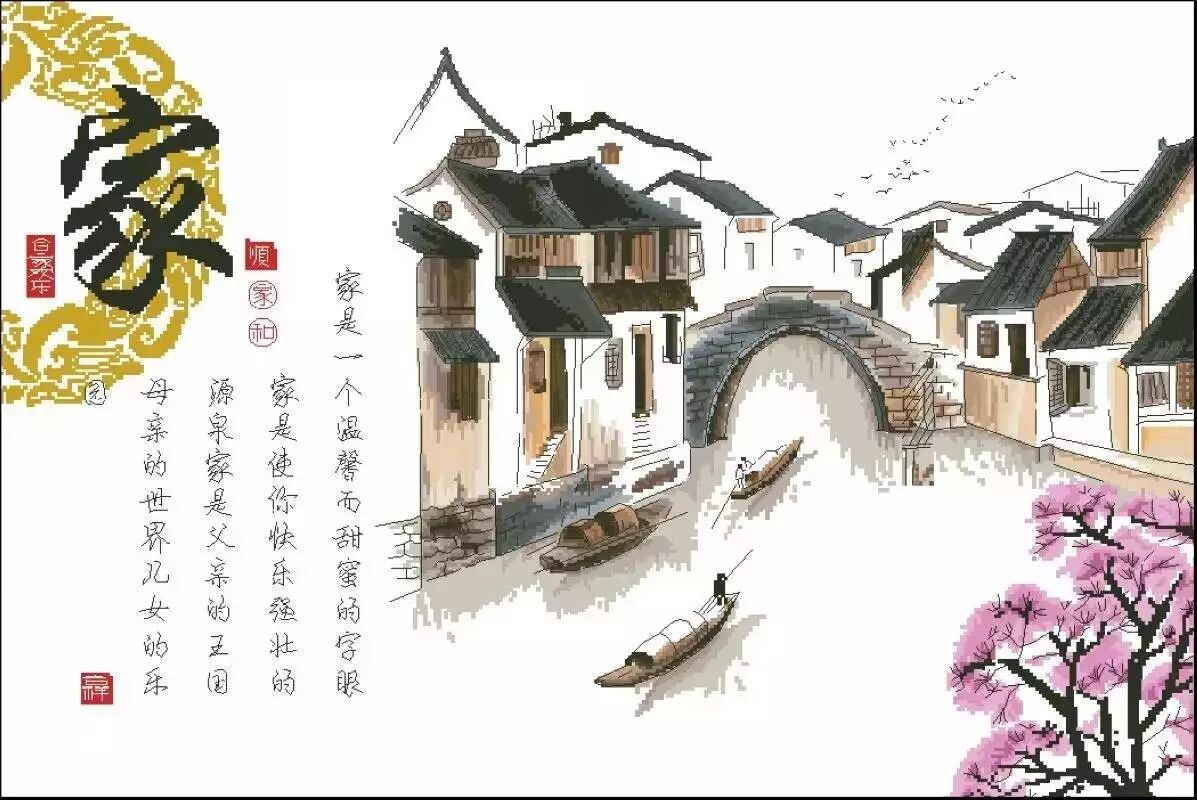 家
合家欢乐
順
家
和
家是一个温馨而甜蜜的字眼
家是使你快乐强壮的
源泉家是父亲的王国
母亲的世界儿女的乐
园
吉祥